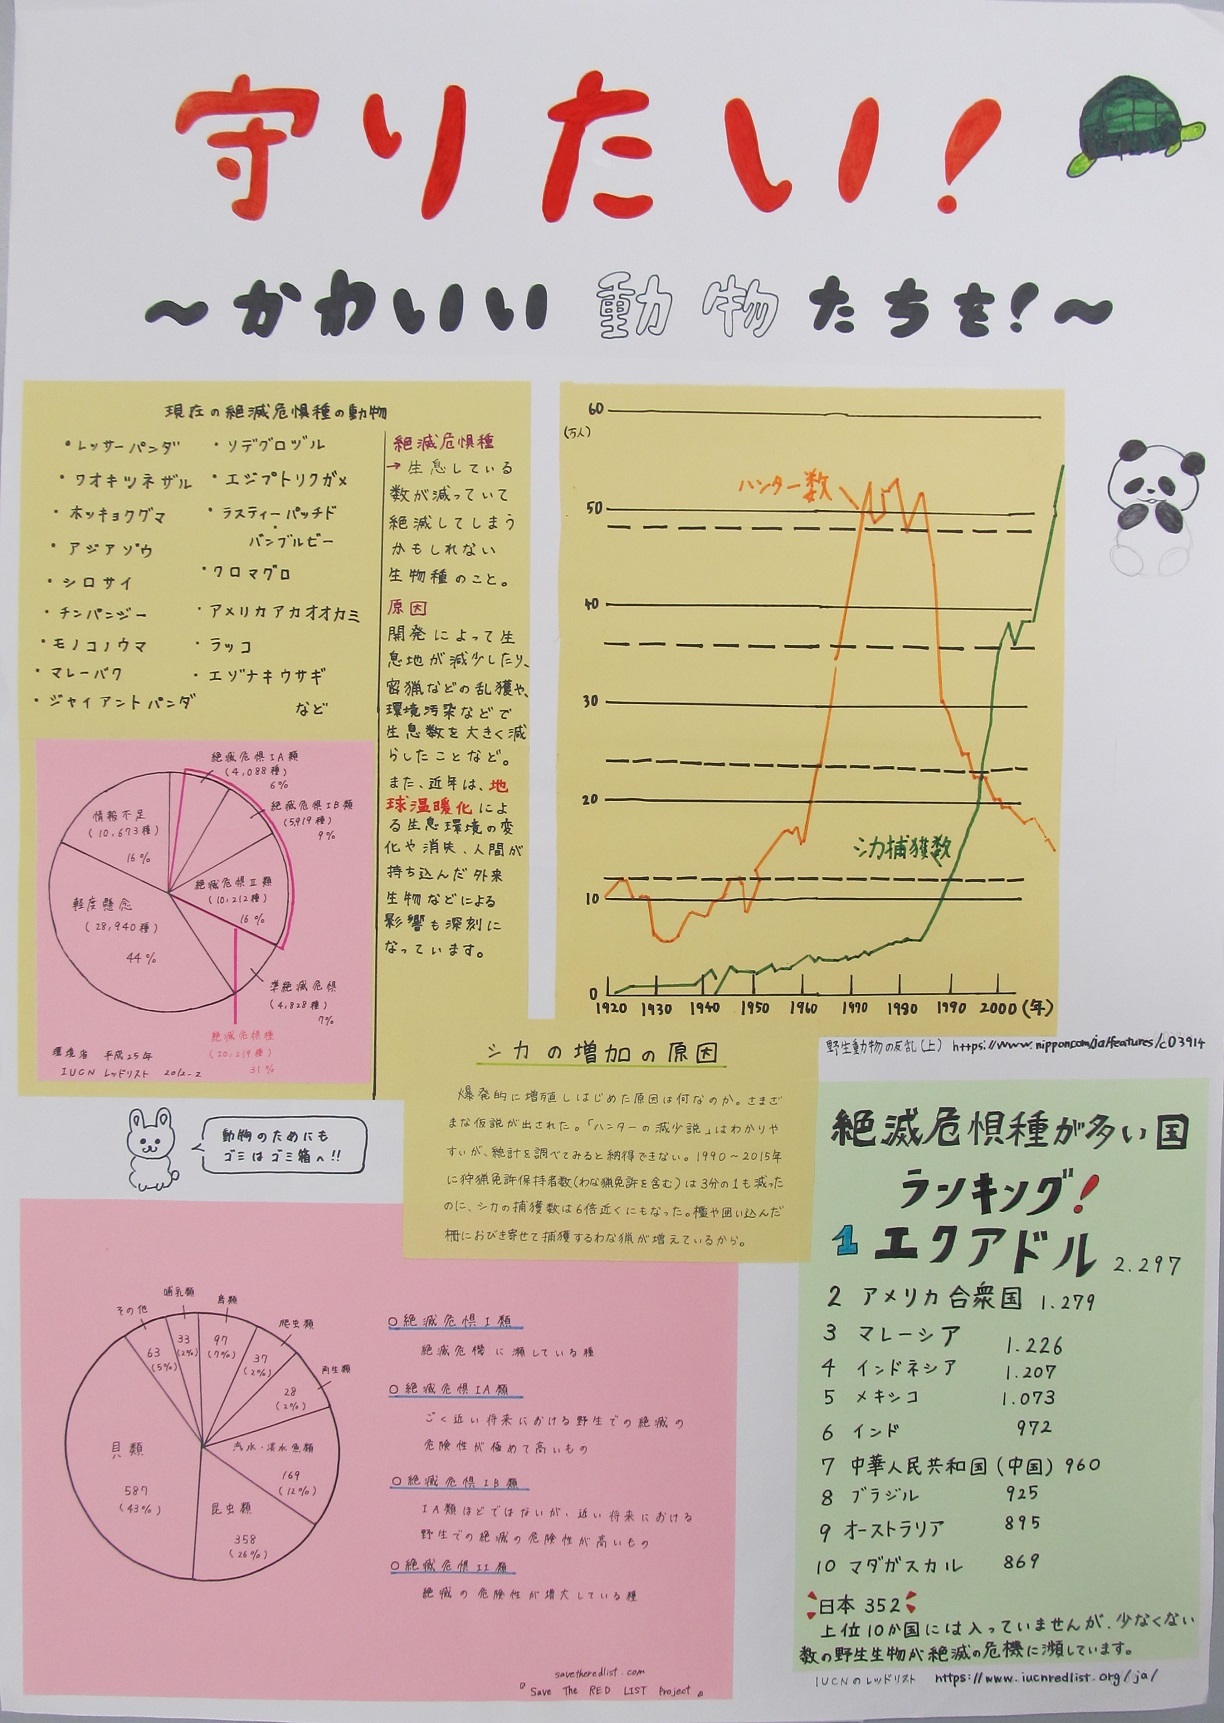 守りたい!
～かわいい動物たちを!～
現在の絶滅危惧種の動物
・レッサーパンダ
・ワオキツネザル
・ホッキョクグマ
・アジアゾウ
・シロサイ
・チンパンジー
・モノコノウマ
・マレーバク
・ジャイアントパンダ
・ソデグロヅル
・エジプトリクガメ
・ラスティーパッチド
バンブルビー
・クロマグロ
・アメリカアカオオカミ
・ラッコ
・エゾナキウサギ
など
絶滅危惧種
→生息している
数が減っていて
絶滅してしまう
かもしれない
生物種のこと。
原因
開発によって生
息地が減少したり、
密猟などの乱獲や、
環境汚染などで
生息数を大きく減
らしたことなど。
また、近年は、地
球温暖化によ
る生息環境の変
化や消失、人間が
持ち込んだ外来
生物などによる
影響も深刻に
なっています。
絶滅危惧IA類
(4,088種)
6%
絶滅危惧IB類
(5,919種)
9%
絶滅危惧II類
(10,212種)
16%
準絶滅危惧
(4,828種)
7%
軽度懸念
(28,940種)
44%
情報不足
(10,673種)
16%
絶滅危惧種
(20,219種)
31%
環境省 平成25年
IUCN レッドリスト 2012-2
60
(万人)
50
40
30
20
10
0
ハンター数
シカ捕獲数
1920 1930 1940 1950 1960 1970 1980 1990 2000(年)
野生動物の反乱(上) https://www.nippon.com/ja/features/c03914
シカの増加の原因
爆発的に増殖しはじめた原因は何なのか。さまざ
まな仮説が出された。「ハンターの減少説」はわかりや
すいが、統計を調べてみると納得できない。1990～2015年
に狩猟免許保持者数(わな猟免許を含む)は3分の1も減った
のに、シカの捕獲数は6倍近くにもなった。檻や囲い込んだ
柵におびき寄せて捕獲するわな猟が増えているから。
動物のためにも
ゴミはゴミ箱へ!!
その他
63
(5%)
哺乳類
33
(2%)
鳥類
97
(7%)
爬虫類
37
(2%)
両生類
28
(2%)
汽水・淡水魚類
169
(12%)
昆虫類
358
(26%)
貝類
587
(43%)
○絶滅危惧I類
絶滅危機に瀕している種
○絶滅危惧IA類
ごく近い将来における野生での絶滅の
危険性が極めて高いもの
○絶滅危惧IB類
IA類ほどではないが、近い将来における
野生での絶滅の危険性が高いもの
○絶滅危惧II類
絶滅の危険性が増大している種
savetheredlist.com
『Save The RED LIST Project』
絶滅危惧種が多い国
ランキング!
1 エクアドル 2.297
2 アメリカ合衆国 1.279
3 マレーシア 1.226
4 インドネシア 1.207
5 メキシコ 1.073
6 インド 972
7 中華人民共和国(中国) 960
8 ブラジル 925
9 オーストラリア 895
10 マダガスカル 869
日本 352
上位10か国には入っていませんが、少なくない
数の野生生物が絶滅の危機に瀕しています。
IUCNのレッドリスト https://www.iucnredlist.org/ja/